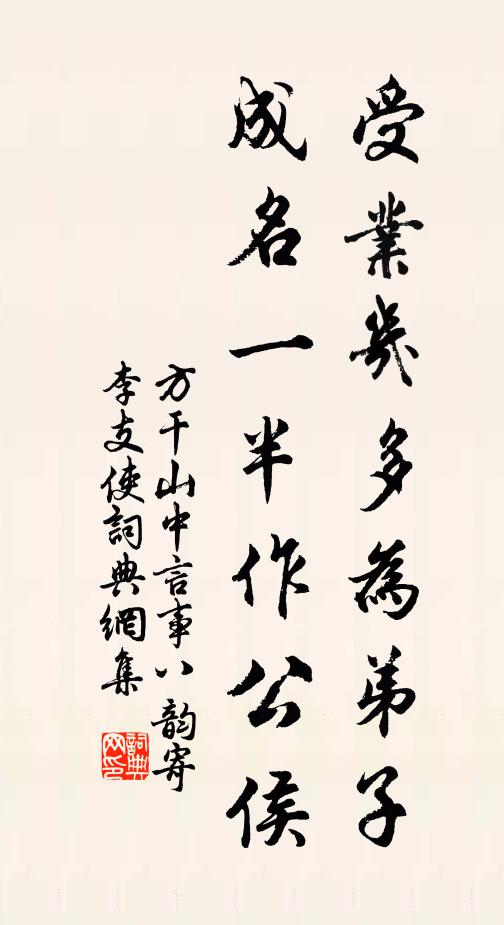 受業幾多為弟子
成名一半作公侯
方干山中言事八韵寄
李支使詞典網集
詞典网印